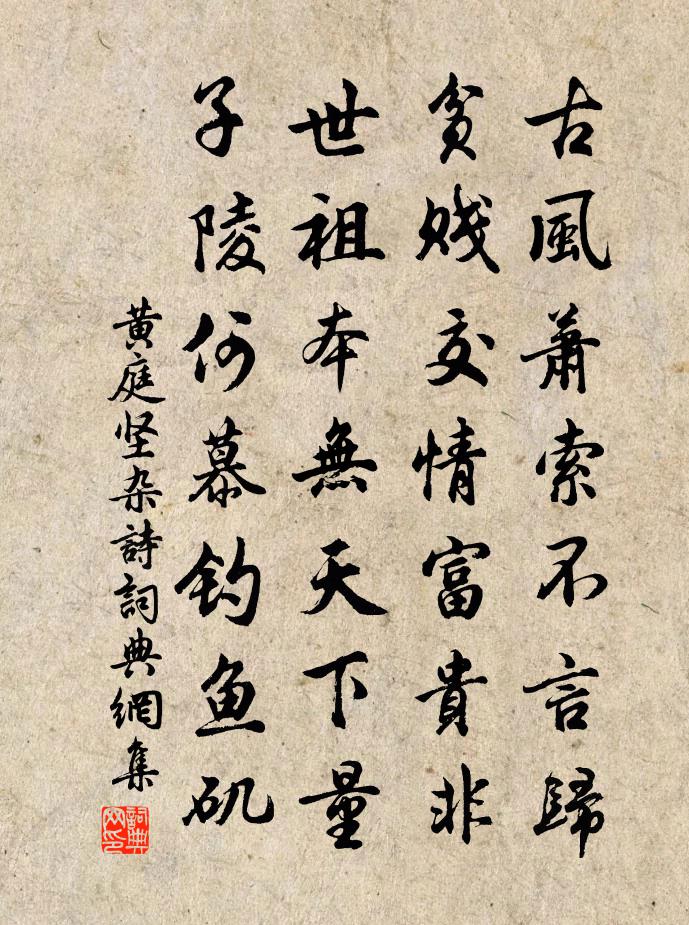 古風蕭索不言歸
貧賤交情富貴非
世祖本無天下量
子陵何慕钓鱼矶
黄庭坚杂詩詞典網集
詞典网印